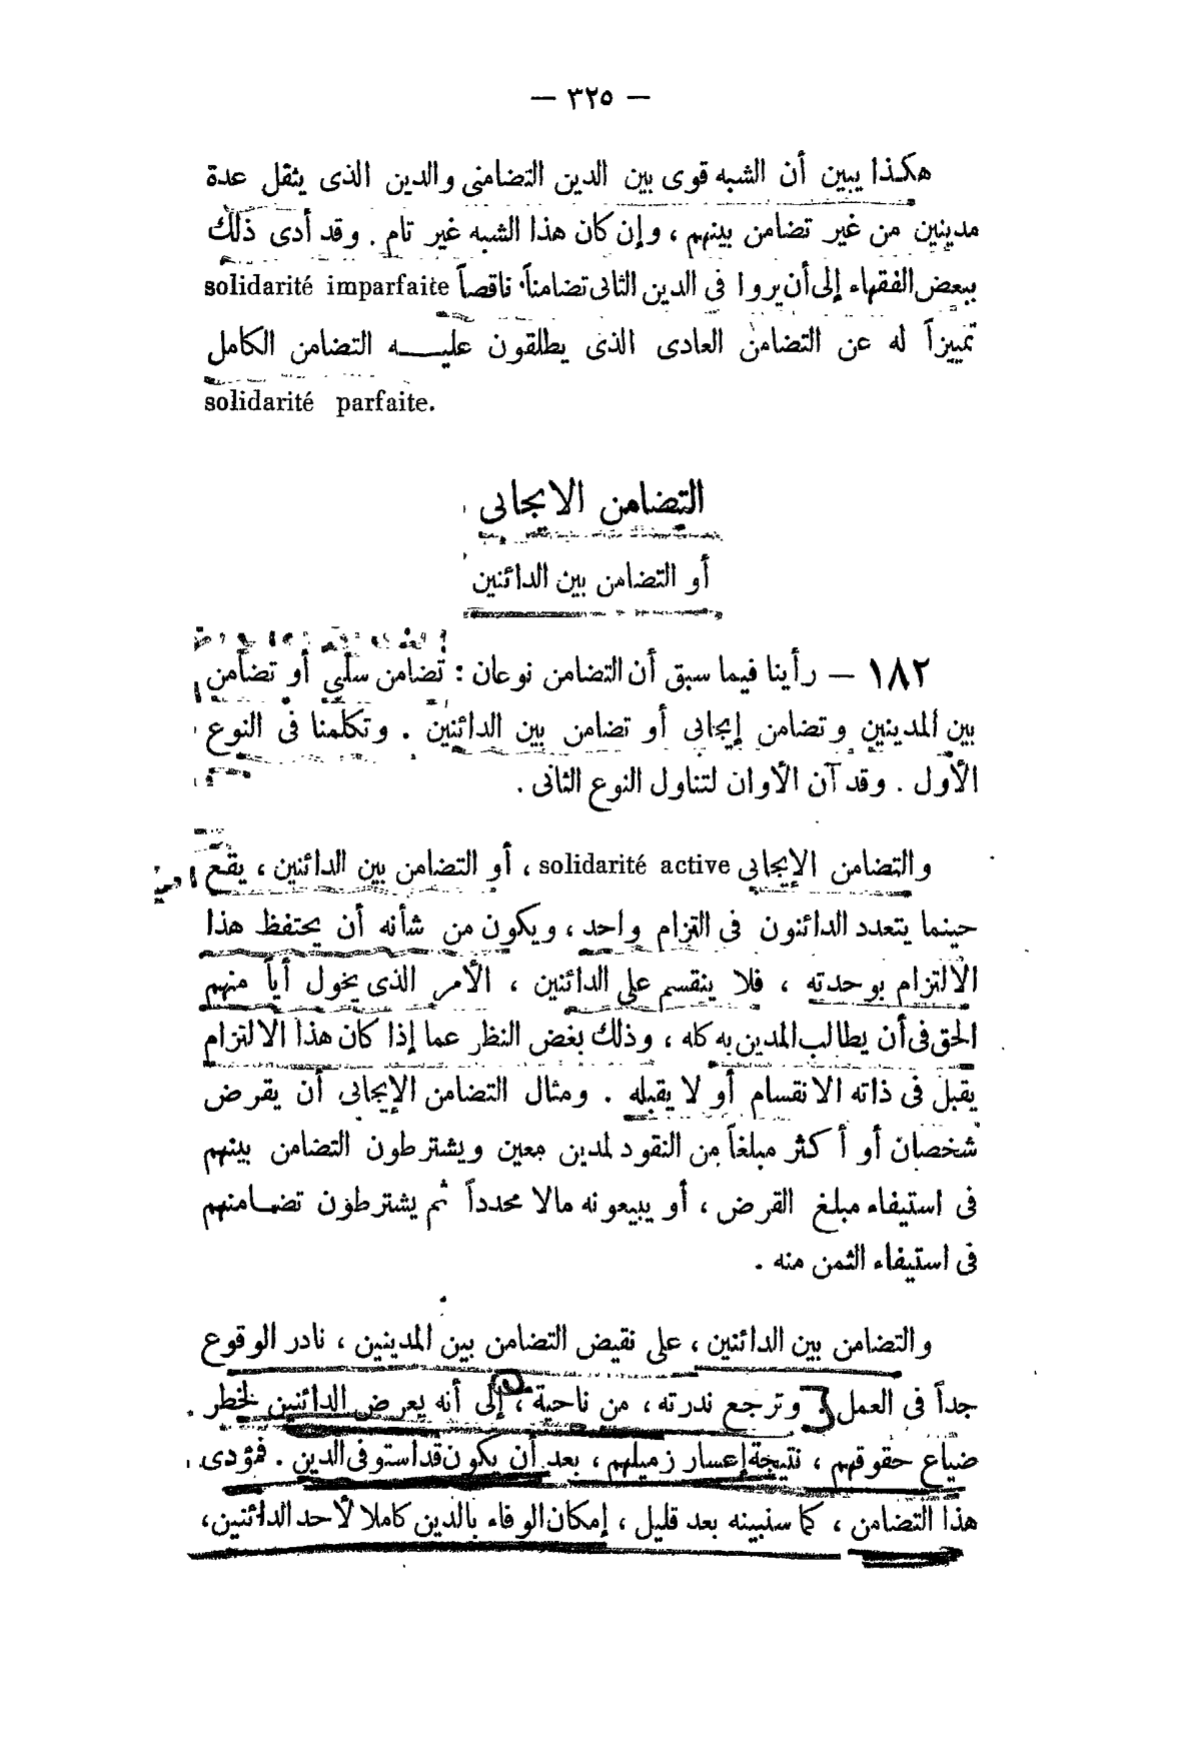 — ٣٢٥ —
هكذا يبين أن الشبه قوى بين الدين التضامنى والدين الذى يثقل عدة
مدينين من غير تضامن بينهم ، وإن كان هذا الشبه غير تام . وقد أدى ذلك
ببعض الفقهاء إلى أن يروا فى الدين الثانى تضامناً ناقصاً solidarité imparfaite
تمييزاً له عن التضامن العادى الذى يطلقون عليـــه التضامن الكامل
solidarité parfaite.
التضامن الايجابى
أو التضامن بين الدائنين
١٨٢ — رأينا فيما سبق أن التضامن نوعان : تضامن سلبى أو تضامن
بين المدينين وتضامن إيجابى أو تضامن بين الدائنين . وتكلمنا فى النوع
الأول . وقد آن الأوان لتناول النوع الثانى .
والتضامن الإيجابى solidarité active ، أو التضامن بين الدائنين ، يقع
حينما يتعدد الدائنون فى التزام واحد ، ويكون من شأنه أن يحتفظ هذا
الالتزام بوحدته ، فلا ينقسم على الدائنين ، الأمر الذى يخول أياً منهم
الحق فى أن يطالب المدين به كله ، وذلك بغض النظر عما إذا كان هذا الالتزام
يقبل فى ذاته الانقسام أو لا يقبله . ومثال التضامن الإيجابى أن يقرض
شخصان أو أكثر مبلغاً من النقود لمدين معين ويشترطون التضامن بينهم
فى استيفاء مبلغ القرض ، أو يبيعونه مالا محدداً ثم يشترطون تضـامنهم
فى استيفاء الثمن منه .
والتضامن بين الدائنين ، على نقيض التضامن بين المدينين ، نادر الوقوع
جداً فى العمل . وترجع ندرته ، من ناحية ، إلى أنه يعرض الدائنين لخطر
ضياع حقوقهم ، نتيجة إعسار زميلهم ، بعد أن يكون قد استوفى الدين . فمؤدى
هذا التضامن ، كما سنبينه بعد قليل ، إمكان الوفاء بالدين كاملا لأحد الدائنين ،